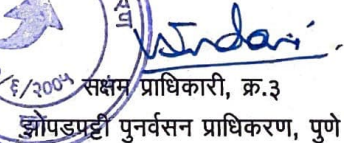 /६/२००५ सक्षम प्राधिकारी, क्र.३
झोपडपट्टी पुनर्वसन प्राधिकरण, पुणे